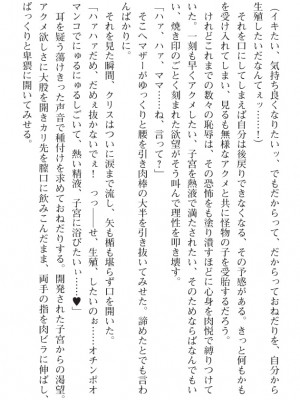 (イキたい、気持ち良くなりたいっ……でもだからって、だからっておねだりを、自分から
生殖したいだなんてぇッ……!)
　それを口にしてしまえば自分は後戻りできなくなる、その予感がある。きっと何もかも
を受け入れてしまい、見るも無様なアクメと共に怪物の子を受胎するだろう。
　けれどこれまでの数々の恥辱は、その恐怖をも塗り潰すほどに心身を肉悦で縛りつけて
いた。一刻も早くアクメしたい、子宮を熱液で満たされたい、そのためならばなんでもい
い、焼き印のごとく刻まれた欲望がそう叫んで理性を叩き壊す。
「ハァ、ハァ、ママ……ね、言って?」
　そこへマザーがゆっくりと腰を引き肉棒の大半を引き抜いてみせた。諦めたとでも言わ
んばかりに。
　それを見た瞬間、クリスはつい涙まで流し、矢も楯も堪らず口を開いた。
「ハァハァだめ、だめぇ抜かないでぇ!　っっ――せ、生殖、したいのぉ……オチンポオ
マンコでにゅるにゅるしごいて、熱い精液、子宮に浴びたいぃ……♥」
　耳を疑う蕩けきった声音で種付けを求めておねだりする。開発された子宮からの渇望。
アクメ欲しさに大股を開きカリ先を膣口に飲みこんだまま、両手の指を肉ビラに伸ばし、
ぱっくりと卑猥に開いてみせる。